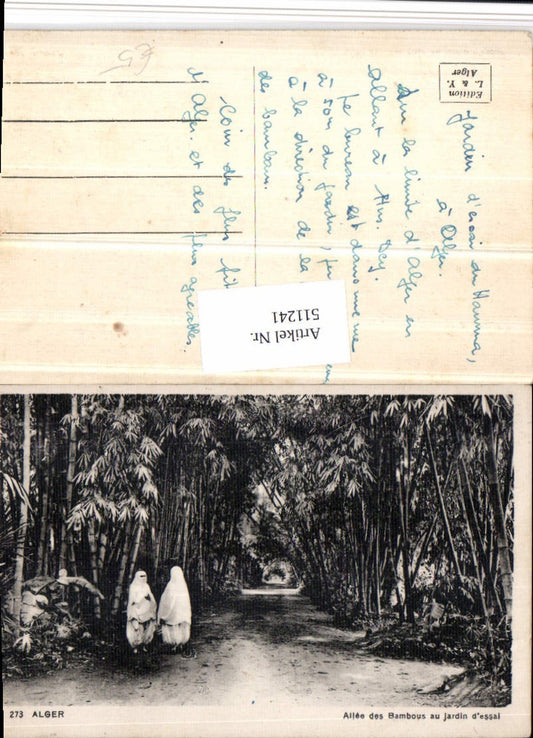 Edition
L. & Y.
Alger
Jardin d'essai du Hamma,
à Alger.
Sur la limite d'Alger en
allant à Hus. Dey.
Le bureau est dans une
à 50m du jardin,
à la direction de la
de bambou.
Coin des plus
d'Alger et des plus agréables.
Artikel Nr.
511241
273 ALGER
Allée des Bambous au jardin d'essai